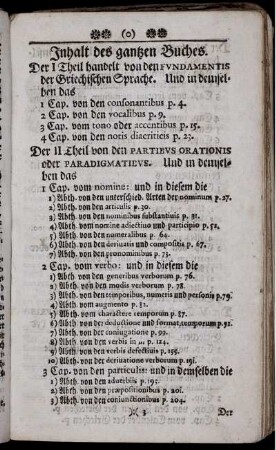 (o)
Inhalt des gantzen Buches.
Der I Theil handelt von den FVNDAMENTIS
der Griechischen Sprache. Und in demsel-
ben das
1 Cap. von den consonantibus p. 4.
2 Cap. von den vocalibus p. 9.
3 Cap. vom tono oder accentibus p. 15.
4 Cap. von den notis diacriticis p. 23.
Der II Theil von den PARTIBVS ORATIONIS
oder PARADIGMATICVS. Und in demsel-
ben das
1 Cap. vom nomine: und in diesem die
1) Abth. von den unterschied. Arten der nominum p. 27.
2) Abth. von den articulis p. 30.
3) Abth. von den nominibus substantiuis p. 31.
4) Abth. vom nomine adiectiuo und participio p. 51.
5) Abth. von den numeralibus p. 64.
6) Abth. von den deriuatis und compositis p. 67.
7) Abth. von den pronominibus p. 73.
2 Cap. vom verbo: und in diesem die
1) Abth. von den generibus verborum p. 76.
2) Abth. von den modis verborum p. 78.
3) Abth. von den temporibus, numeris und personis p. 79.
4) Abth. vom augmento p. 81.
5) Abth. vom charactere temporum p. 87.
6) Abth. von der deductione und format. temporum p. 91.
7) Abth. von der coniugatione p. 99.
8) Abth. von den verbis in μι p. 124.
9) Abth. von den verbis defectiuis p. 155.
10) Abth. von der deriuatione verborum p. 191.
3 Cap. von den particulis: und in demselben die
1) Abth. von den aduerbiis p. 193.
2) Abth. von den praepositionibus p. 201.
3) Abth. von den coniunctionibus p. 204.
)( 3 Der